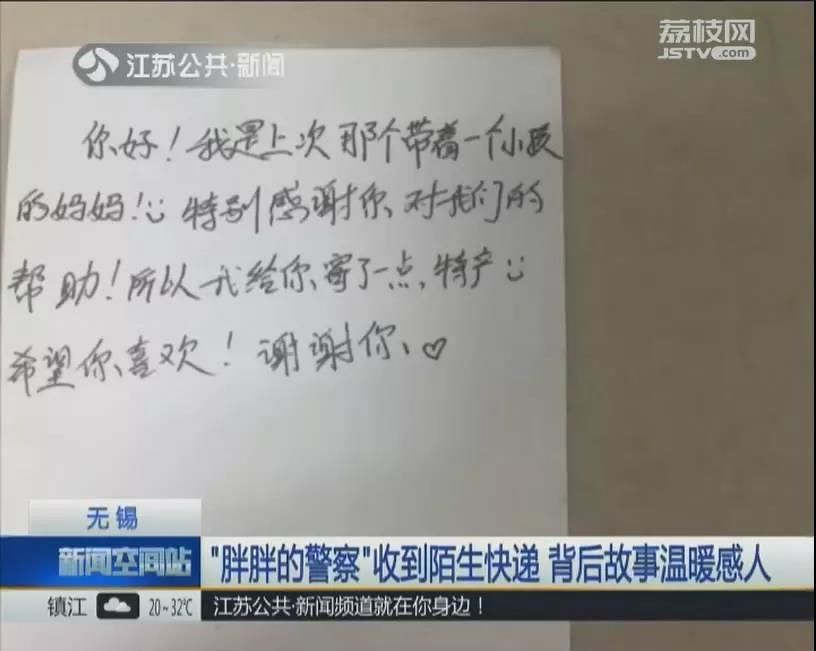 江苏公共·新闻
荔枝网
JSTV.com
你好！我是上次那个带着一个小孩
的妈妈！特别感谢你、对我们的
帮助！所以我给你、寄了一点、特产
希望你、喜欢！谢谢你、♡
无锡
新闻空间站
"胖胖的警察"收到陌生快递 背后故事温暖感人
镇江 20~32℃ 江苏公共·新闻频道就在你身边！